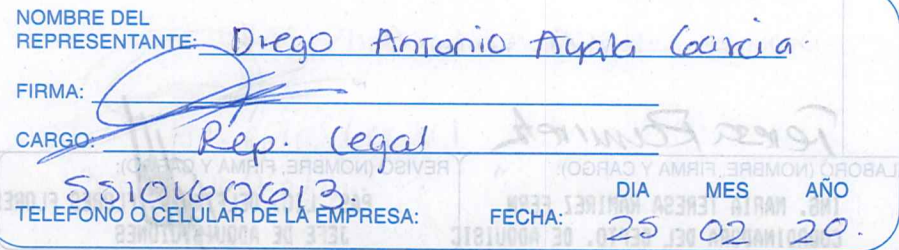 NOMBRE DEL
REPRESENTANTE: Diego Antonio Ayala Garcia.
FIRMA:
CARGO: Rep. Legal
5510160613.
TELEFONO O CELULAR DE LA EMPRESA:
FECHA: DIA MES AÑO
25 02 20.